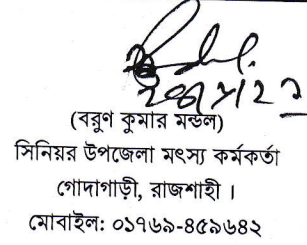 (বরুণ কুমার মন্ডল)
সিনিয়র উপজেলা মৎস্য কর্মকর্তা
গোদাগাড়ী, রাজশাহী ।
মোবাইল: ০১৭৬৯-৪৫৯৬৪২